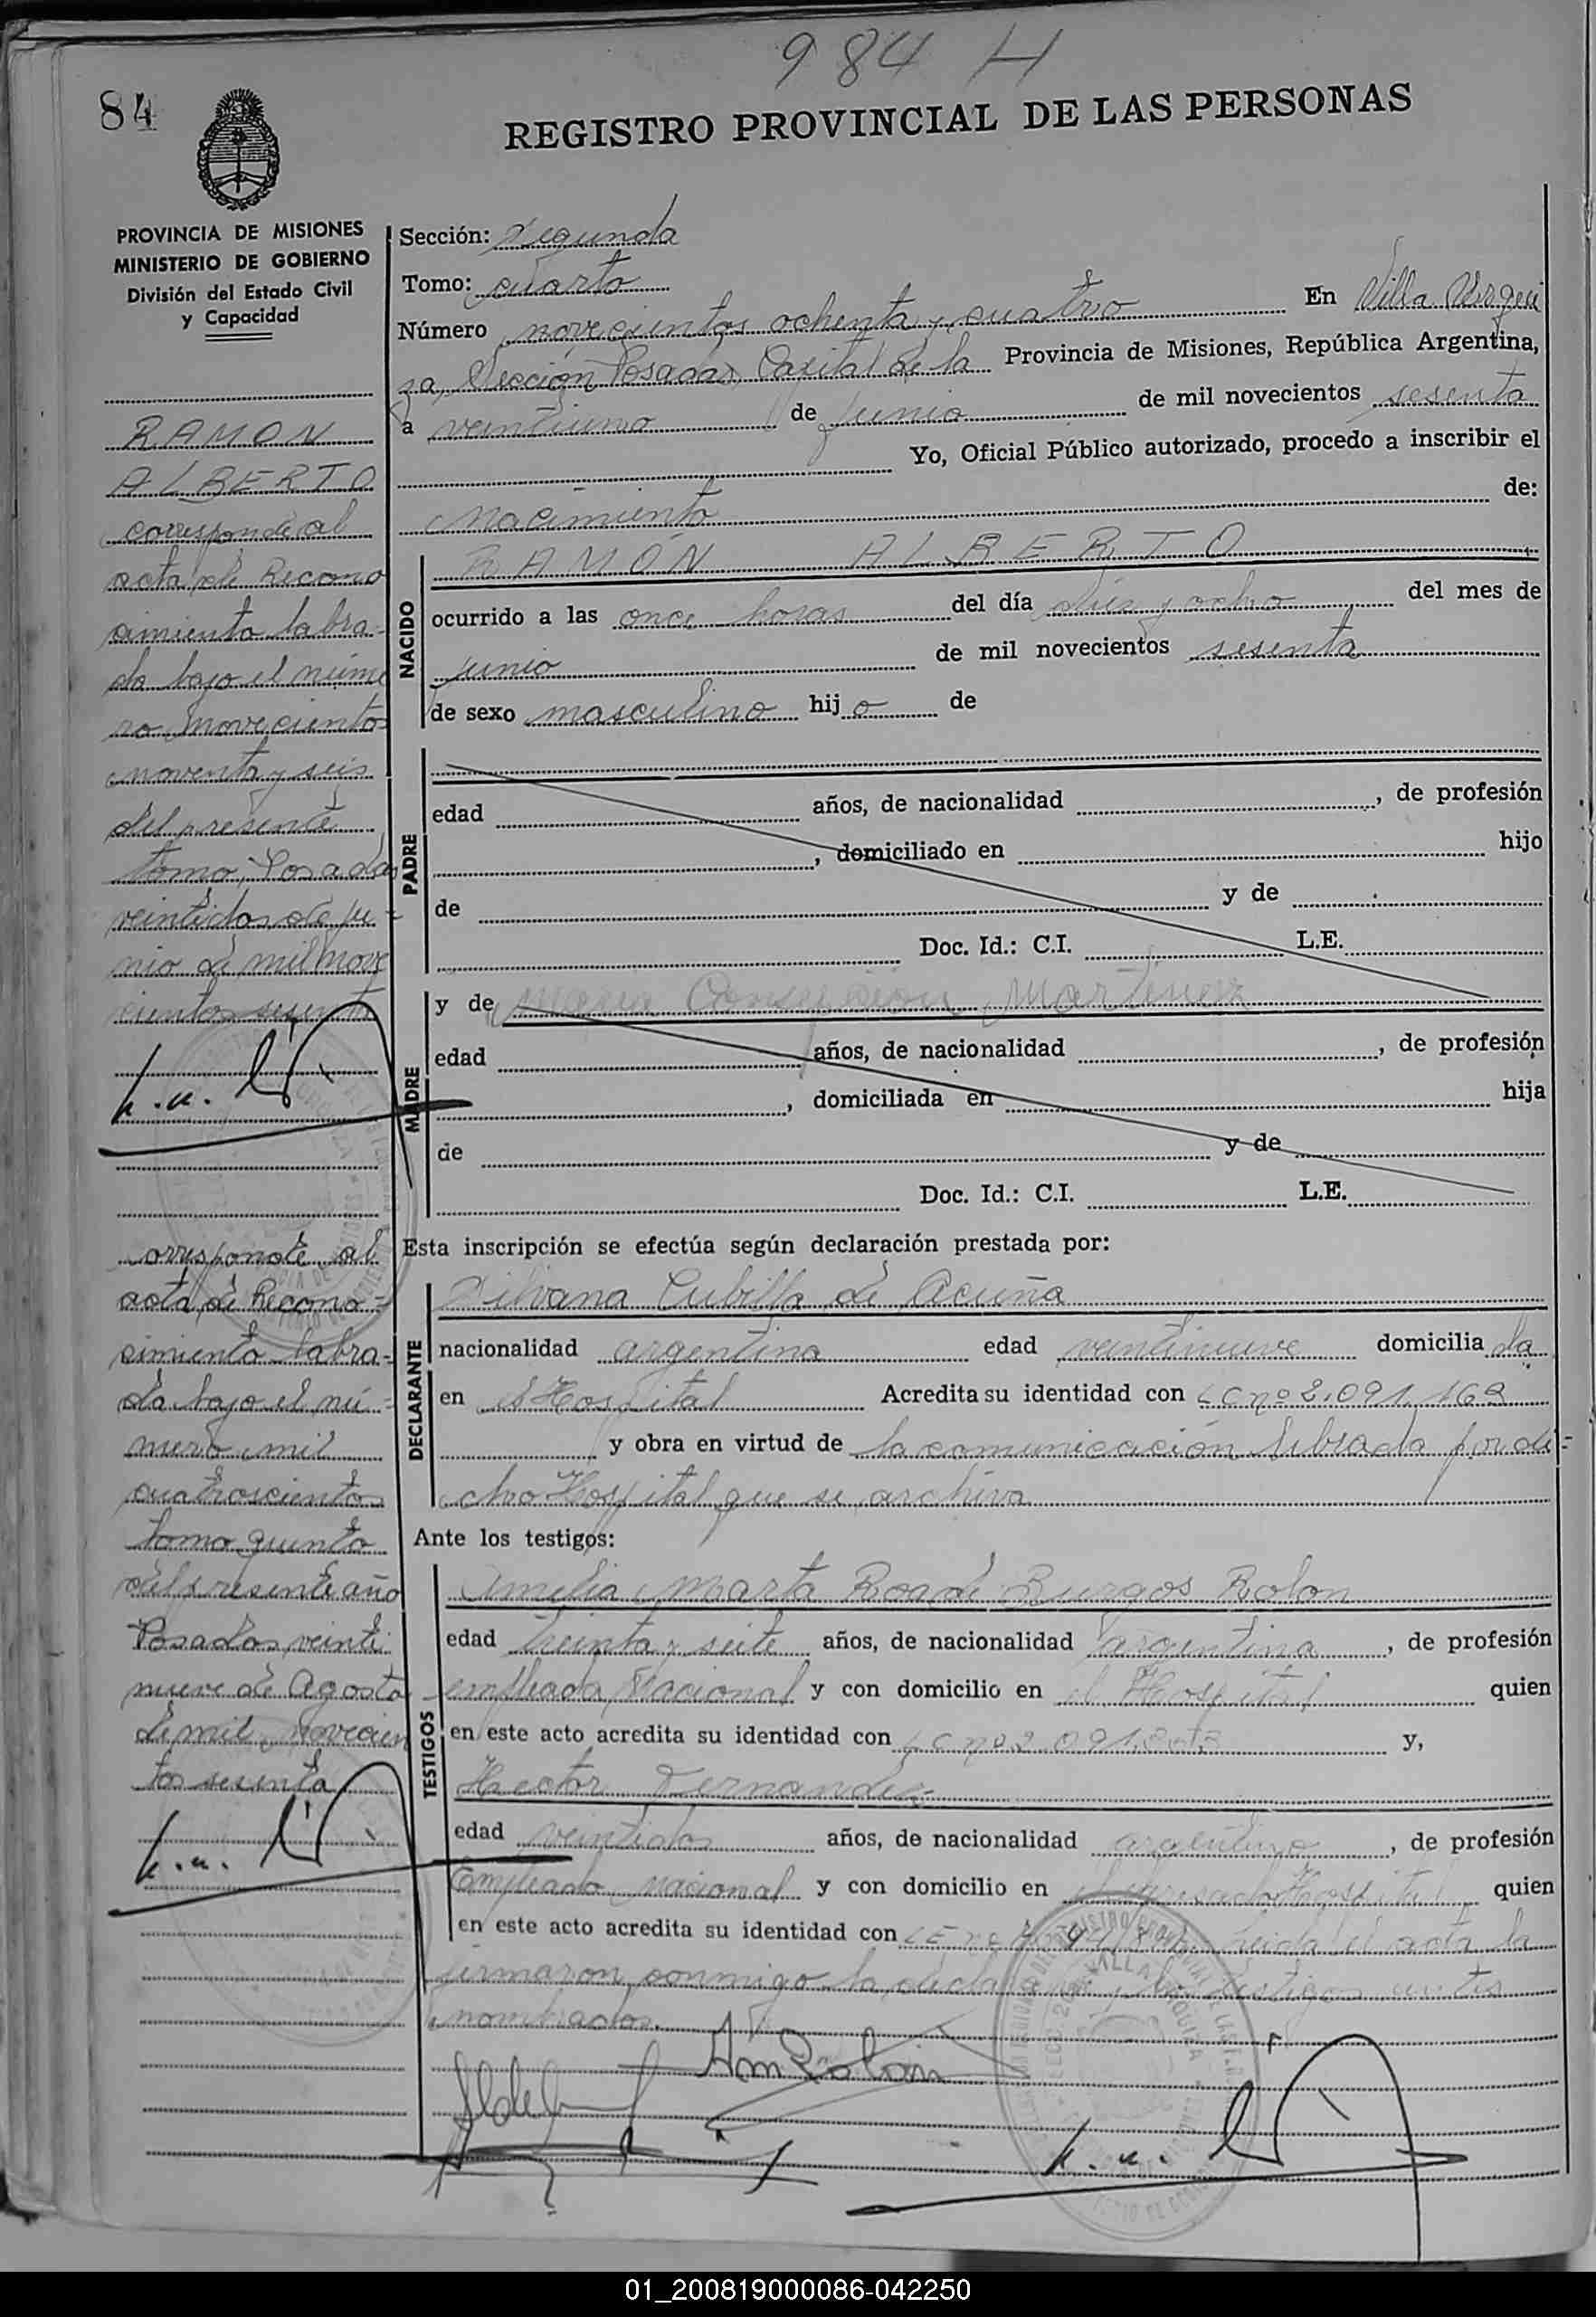 984 H
84
REGISTRO PROVINCIAL DE LAS PERSONAS
PROVINCIA DE MISIONES
MINISTERIO DE GOBIERNO
División del Estado Civil
y Capacidad
RAMON
ALBERTO
corresponde al
acta de Recono
cimiento labra-
da bajo el núme
ro novecientos
noventa y seis
del presente
tomo, Posadas
veintidos de ju-
nio de mil nove
cientos sesenta
corresponde al
acta de Recono-
cimiento labra-
da bajo el nú-
mero mil
cuatrocientos
tomo quinto
del presente año
Posadas, veinti
nueve de Agosto
de mil novecien
tos sesenta
Sección: Segunda
Tomo: cuarto
Número novecientos ochenta y cuatro En Villa Urqui
za, Sección Posadas, Capital de la Provincia de Misiones, República Argentina,
a veintiuno de junio de mil novecientos sesenta
Yo, Oficial Público autorizado, procedo a inscribir el
Nacimiento de:
NACIDO
RAMÓN ALBERTO
ocurrido a las once horas del día dies y ocho del mes de
junio de mil novecientos sesenta
de sexo masculino hijo de
PADRE
edad años, de nacionalidad , de profesión
, domiciliado en hijo
de y de
Doc. Id.: C.I. L.E.
MADRE
y de Maria Consepcion Martinez
edad años, de nacionalidad , de profesión
, domiciliada en hija
de y de
Doc. Id.: C.I. L.E.
Esta inscripción se efectúa según declaración prestada por:
DECLARANTE
Silvana Cubilla de Acuña
nacionalidad argentina edad veintinueve domiciliada
en el Hospital Acredita su identidad con LC nº 2.091.163
y obra en virtud de la comunicación librada por di-
cho Hospital que se archiva
Ante los testigos:
TESTIGOS
Amelia Marta Roa de Burgos Rolon
edad treinta y seite años, de nacionalidad argentina, de profesión
empleada Nacional y con domicilio en el Hospital quien
en este acto acredita su identidad con LC nº 2.091. y,
Hector Fernandez
edad veintidos años, de nacionalidad argentino, de profesión
Empleado Nacional y con domicilio en el Hospital quien
en este acto acredita su identidad con LE nº Leida el acta la
firmaron conmigo la declarante y los testigos antes
nombrados.
01_200819000086-042250